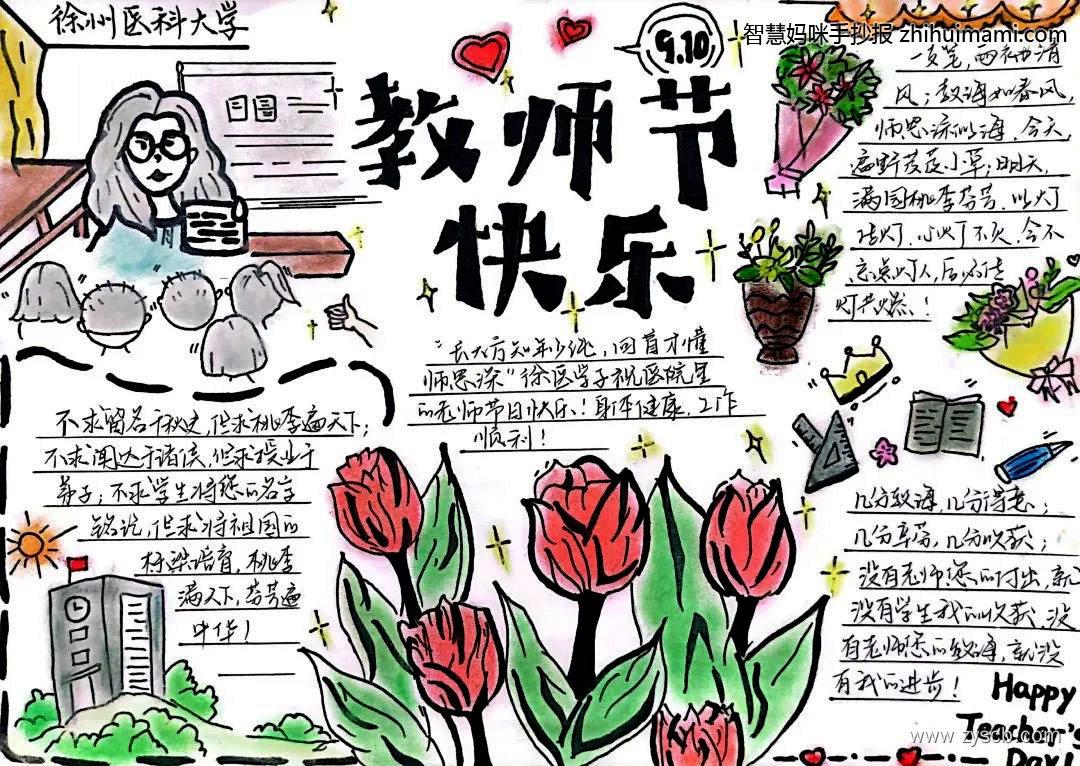 徐州医科大学
9.10
智慧妈咪手抄报 zhihuimami.com
教师节
快乐
一支笔,两袖清
风;教诲如春风,
师恩深似海,今天,
遍野茂茂小草;明天,
满园桃李芬芳,以灯
传灯,心灯不灭,念不
忘点灯人,后必传
灯书爆!
"去大方知年少纯,回首才懂
师恩深"徐医学子祝医院里
的老师节日快乐!身体健康,工作
顺利!
不求留名千秋史,但求桃李遍天下;
不求闻达于诸侯,但求授业于
弟子;不求学生将您的名字
铭记,但求将祖国的
栋梁培育,桃李
满天下,芬芳遍
中华!
几分教诲,几分得意;
几分辛劳,几分收获;
没有老师您的付出,就
没有学生我的收获,没
有老师您的教诲,就没
有我的进步!
Happy
Teacher's
Day!
www.zyscb.com